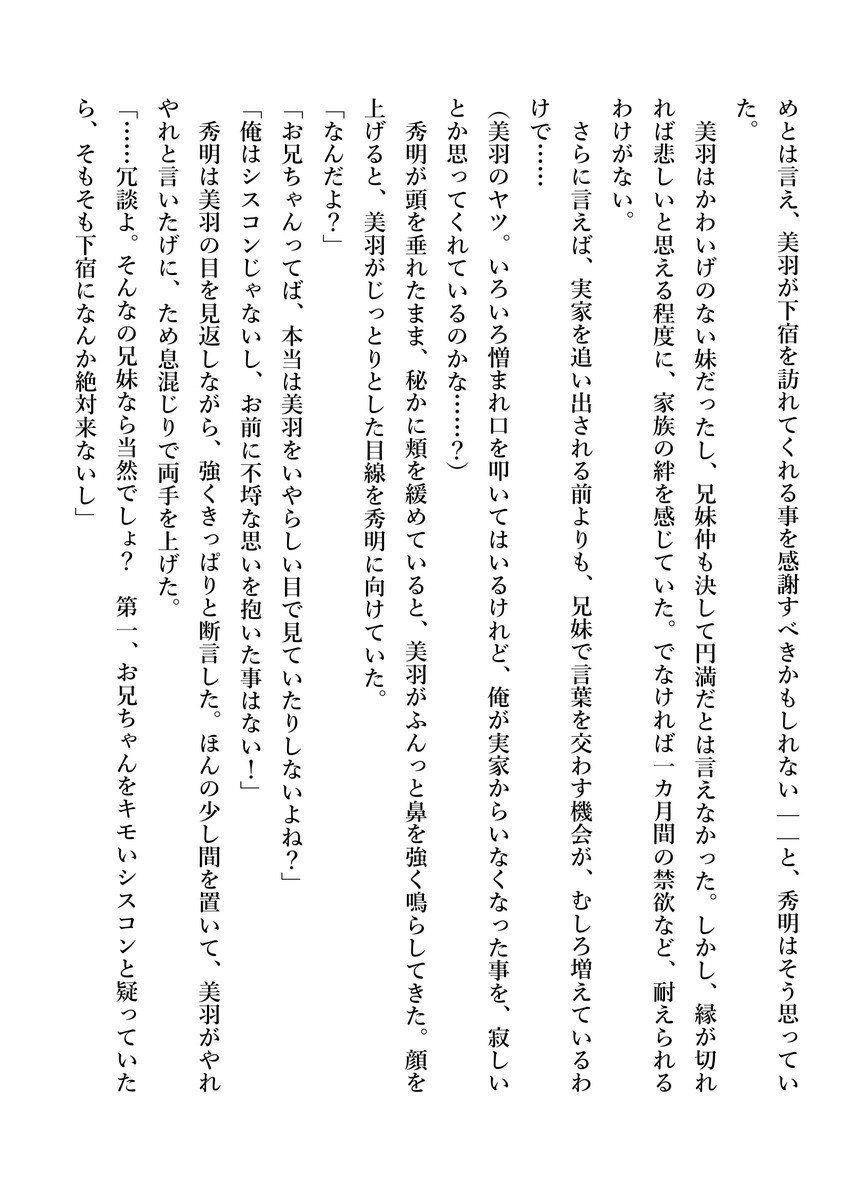 めとは言え、美羽が下宿を訪れてくれる事を感謝すべきかもしれない――と、秀明はそう思ってい
た。
　美羽はかわいげのない妹だったし、兄妹仲も決して円満だとは言えなかった。しかし、縁が切れ
れば悲しいと思える程度に、家族の絆を感じていた。でなければ一カ月間の禁欲など、耐えられる
わけがない。
　さらに言えば、実家を追い出される前よりも、兄妹で言葉を交わす機会が、むしろ増えているわ
けで……
（美羽のヤツ。いろいろ憎まれ口を叩いてはいるけれど、俺が実家からいなくなった事を、寂しい
とか思ってくれているのかな……？）
　秀明が頭を垂れたまま、秘かに頬を緩めていると、美羽がふんっと鼻を強く鳴らしてきた。顔を
上げると、美羽がじっとりとした目線を秀明に向けていた。
「なんだよ？」
「お兄ちゃんってば、本当は美羽をいやらしい目で見ていたりしないよね？」
「俺はシスコンじゃないし、お前に不埒な思いを抱いた事はない！」
　秀明は美羽の目を見返しながら、強くきっぱりと断言した。ほんの少し間を置いて、美羽がやれ
やれと言いたげに、ため息混じりで両手を上げた。
「……冗談よ。そんなの兄妹なら当然でしょ？　第一、お兄ちゃんをキモいシスコンと疑っていた
ら、そもそも下宿になんか絶対来ないし」